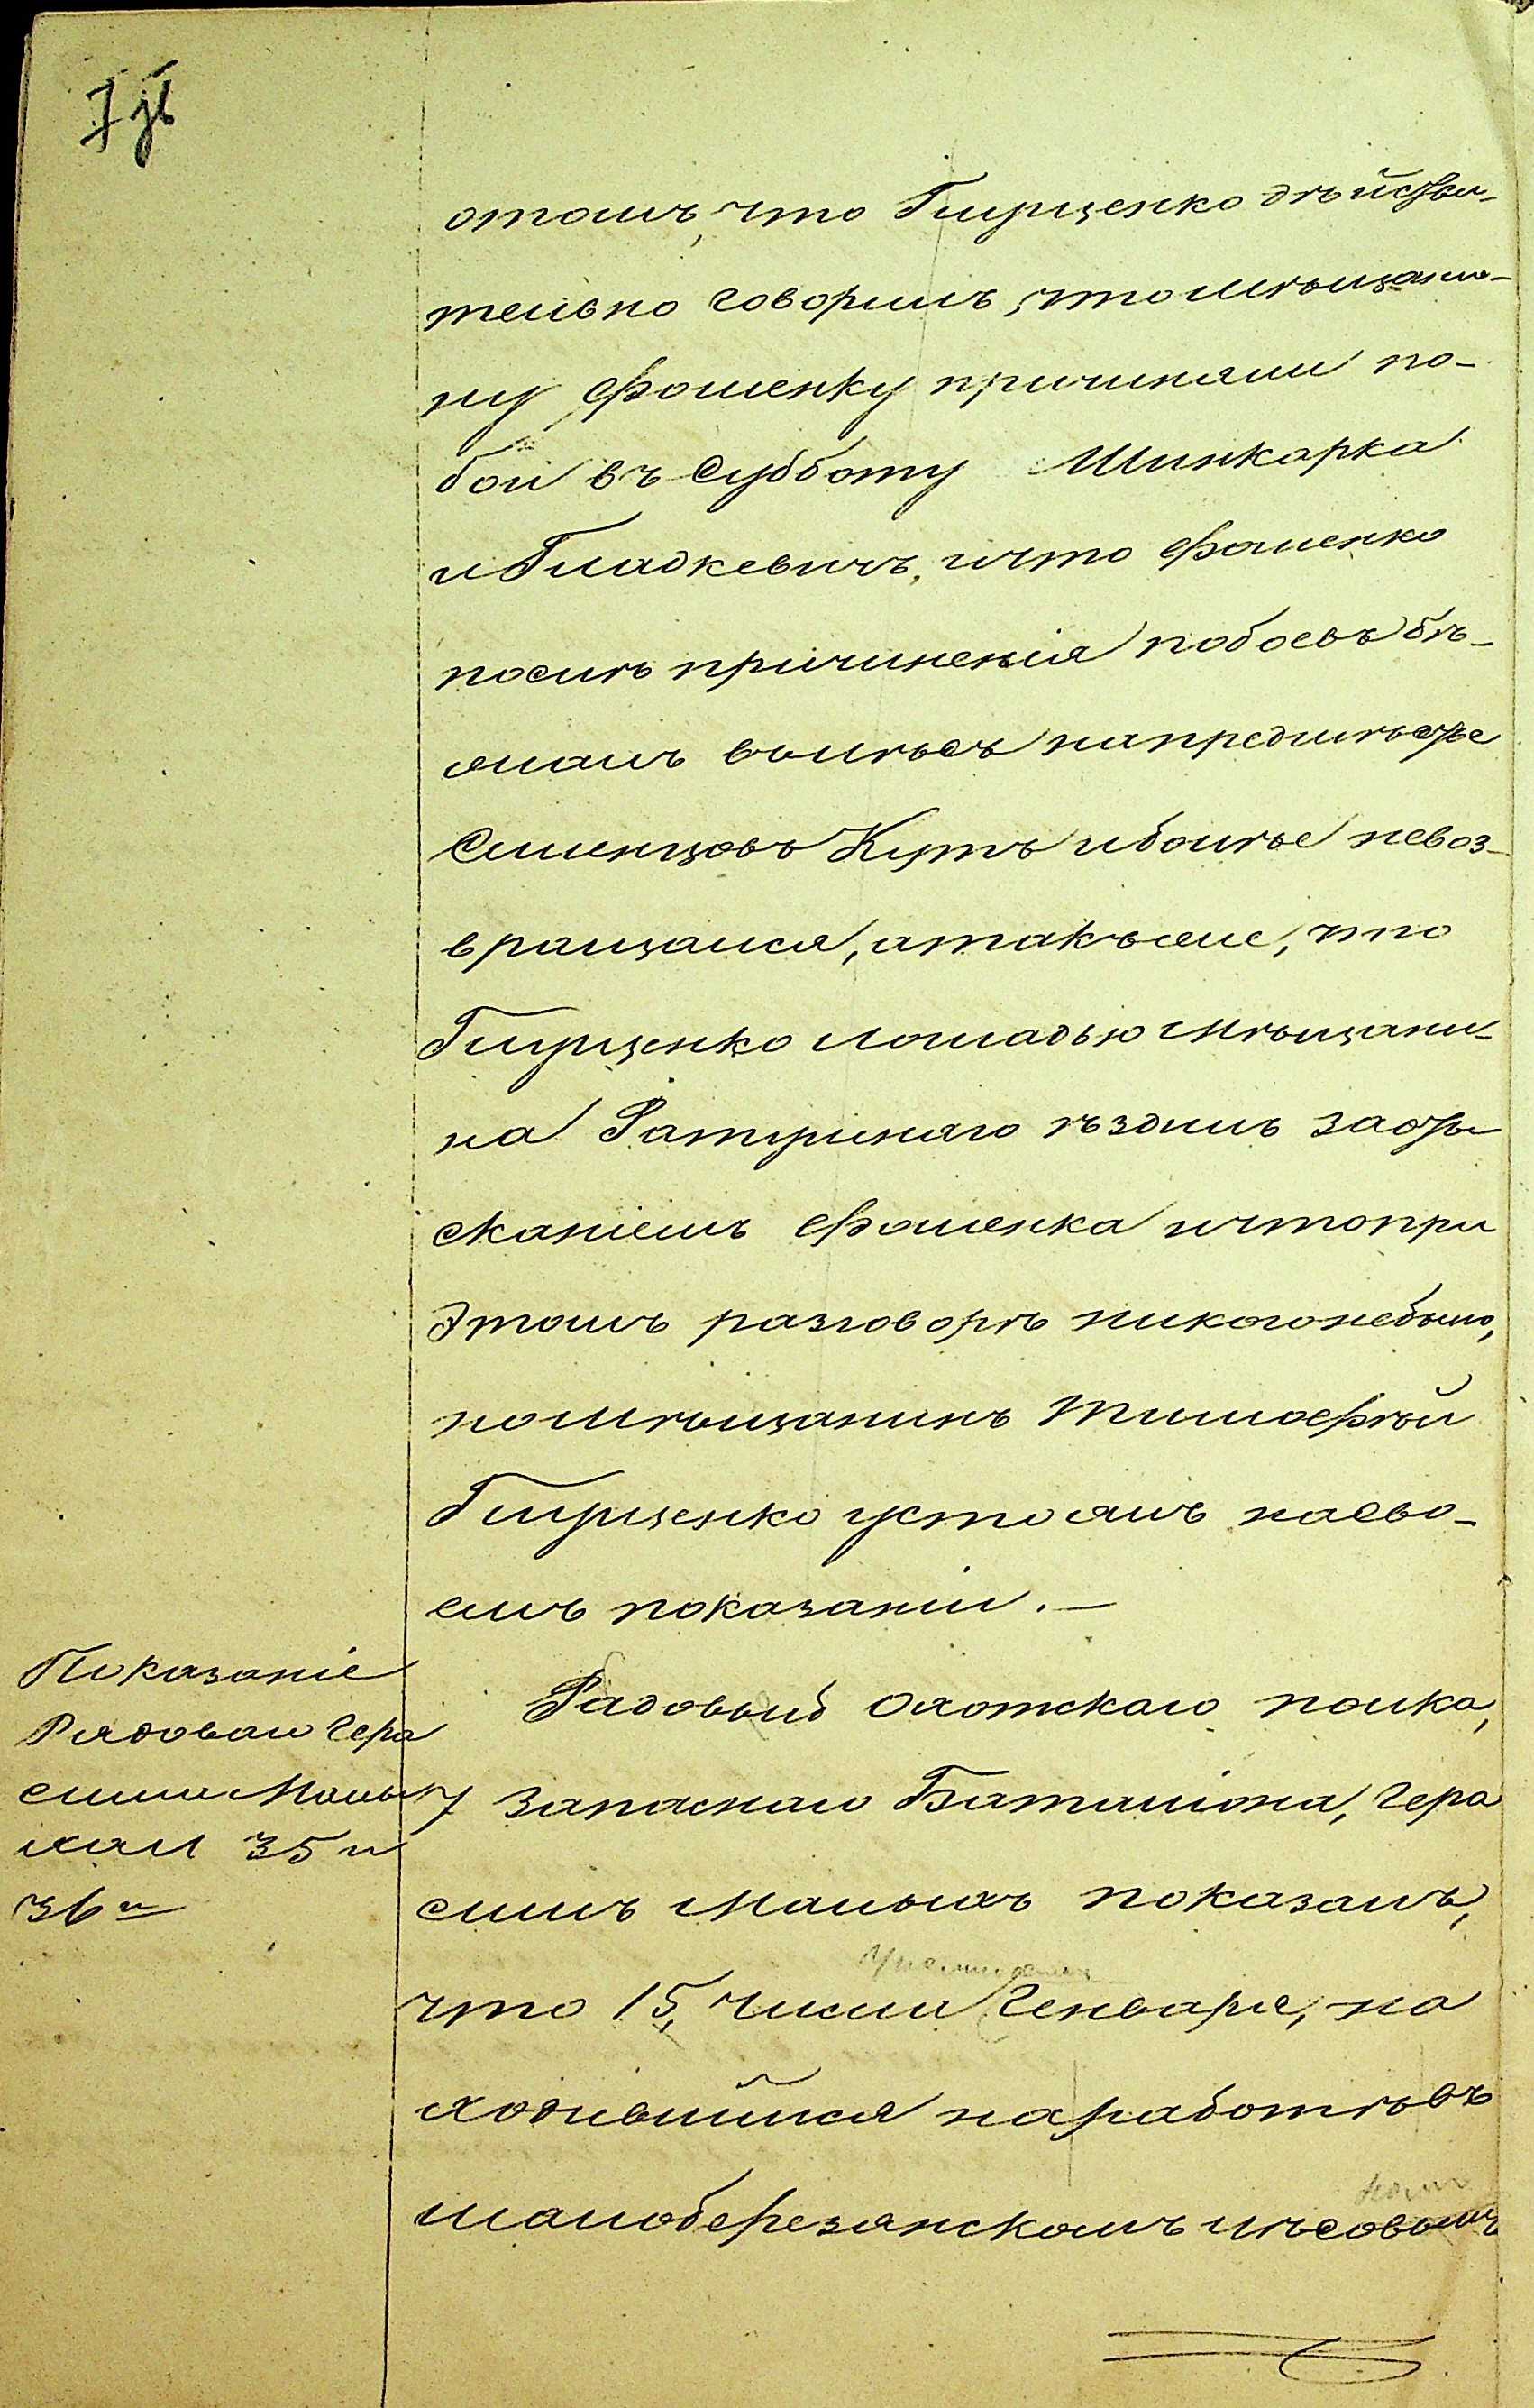 отомъ, что Глущенко дѣйстви-
тельно говорилъ, что мѣщани-
ну Фоменку причиняли по-
бои въ Субботу Шинкарка
и Гладкевичъ, ичто Фоменко
послѣ причиненія побоевъ бѣ-
жалъ вълѣсъ напредмѣстье
Клинцовъ Кутъ иболѣе невоз-
вращался, атакъже, что
Глущенко лошадью мѣщани-
на Ратушнаго ѣздилъ заоты
сканіемъ Фоменка ичтопри
Этомъ разговорѣ никогонебыло,
номѣщанинъ Тимофѣй
Глущенко устоялъ насво-
емъ показаніи.—
Показаніе
Рядоваго Гера
сима Малы
хал 35 и
36 и
Рядовый Охотскаго полка,
7 запаснаго Баталіона, Гера
симъ Малыхъ показалъ,
что 15, числа Генваря, на
ходившійся наработѣвъ
малоберезанскомъ лѣсовомъ